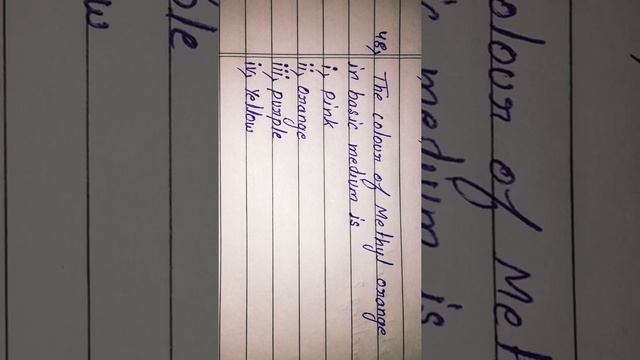 48, The colour of Methyl orange
in basic medium is
i, pink
ii, orange
iii, purple
iv, yellow